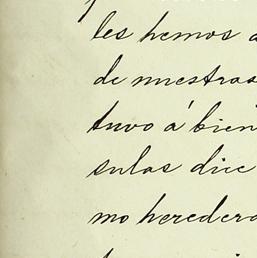 les hemos a
de nuestras
tuvo á bien
sulas dice
mo heredera